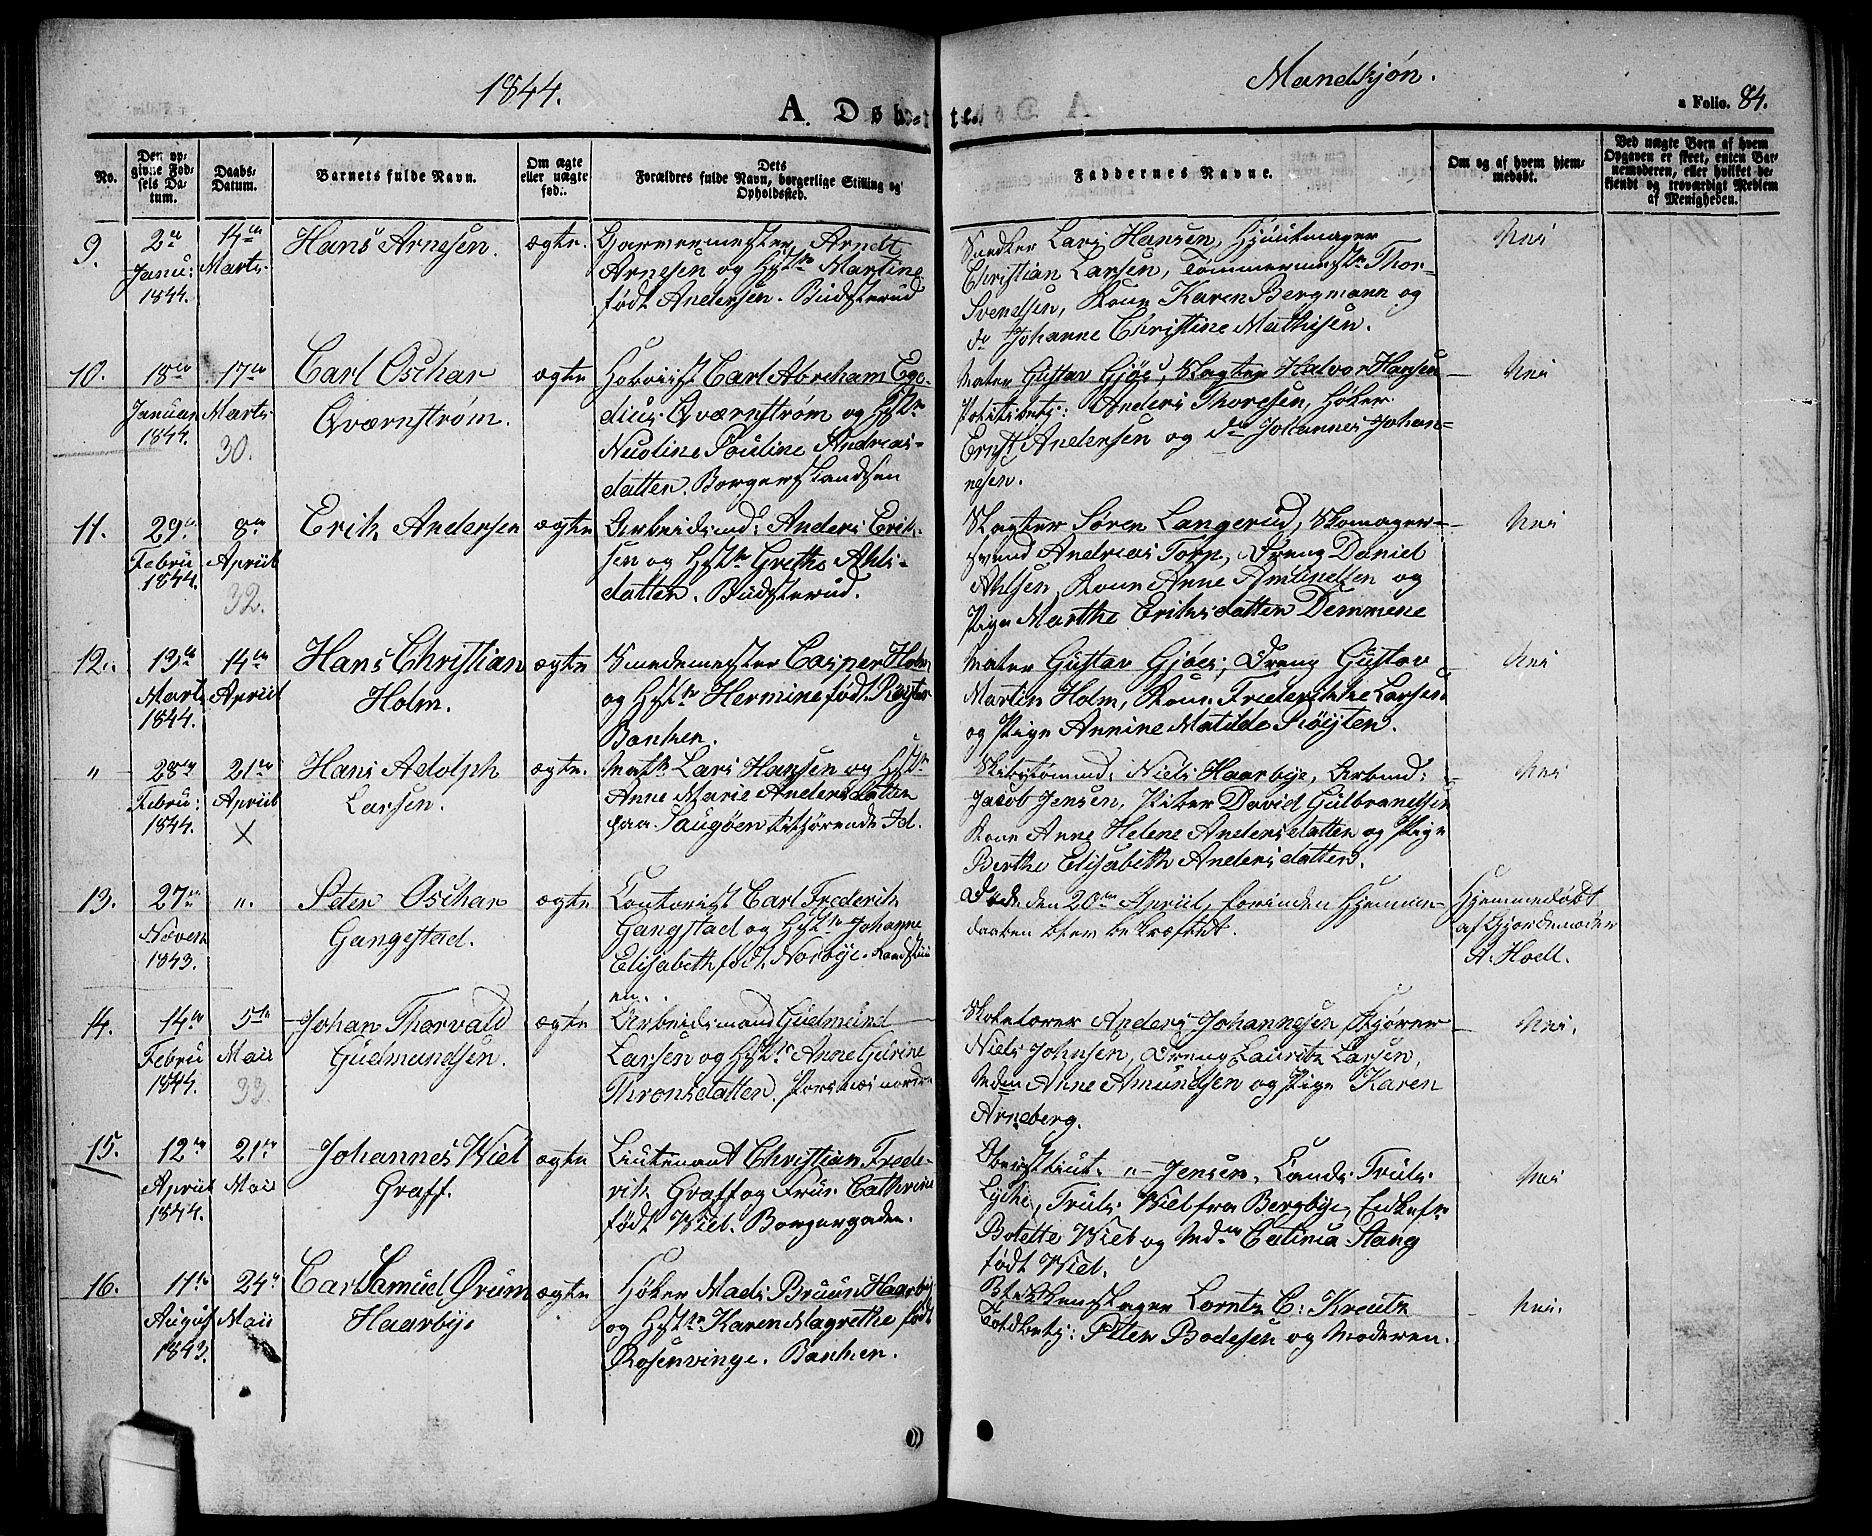 1844.
Mandkjøn.
A. Døbte.
a Folio. 84.
No.
Den opgivne Fødsels Datum.
Daabs-Datum.
Barnets fulde Navn.
Om ægte eller uægte fød.:
Dets Forældres fulde Navn, borgerlige Stilling og Opholdssted.
Faddernes Navne.
Om og af hvem hjemmedøbt.
Ved uægte Børn af hvem Opgaven er skeet, enten Barnemoderen, eller hvilket bekjendt og troværdigt Medlem af Menigheden.
9.
2en
Janu:
1844.
14de
Marts.
Hans Arnesen.
ægte.
Garvermester Arndt
Arnesen og Hustr Martine
født Andersen. Budsterud
Snedker Lars Hansen, Hjulmager
Christian Larsen, Tømmermestr Thor
Svendsen, Kone Karen Bergmann og
do Johanne Christine Mathisen.
Nei
10.
18de
Januar
1844.
17de
Marts
30.
Carl Oschar
Qværnstrøm.
ægte
Hoboist Carl Abraham Ege-
dius Qværnstrøm og Hustr
Nicoline Pauline Andreas-
datter. Borgerskandsen
Mater Gustav Gjøes, Slagter Halvor Hansen
Politibetj: Anders Thoresen, Høker
Ernst Andersen og do Johannes Johan-
nesen.
Nei
11.
29de
Febru
1844.
8de
Apriil
32.
Erik Andersen
ægte
Arbeidsmd: Anders Erik-
sen og Hustr Grethe Ahls-
datter. Budsterud.
Slagter Søren Langerud, Skomager-
svend Andreas Torp, Dreng Daniel
Ahlsen, Kone Anne Amundsen og
Pige Marthe Eriksdatter Demmene
Nei
12.
13de
Marts
1844.
14de
Apriil
Hans Christian
Holm.
ægte
Smedemester Casper Holm
og Hustr Hermine født Røyter
Banken.
Mater Gustav Gjøes, Dreng Gustav
Martin Holm, Kone Frederikke Larsen
og Pige Annine Matilde Røyter.
Nei
"
28de
Febru:
1844.
21de
Apriil
X
Hans Adolph
Larsen.
ægte.
Matr. Lars Hansen og Hustr
Anne Marie Andersdatter
paa Saugøen tilhørende Id.
Skibstømmd: Niels Haarbye, Arbmd:
Jacob Jensen, Piber David Gulbrandsen
Kone Anne Helene Andersdatter og Pige
Berthe Elisabeth Andersdatter.
Nei
13.
27de
Novem
1843.
".
Peter Oschar
Gangestad.
ægte
Contorist Carl Frederik
Gangstad og Hustr Johanne
Elisabeth født Norbye.
en.
Døde den 20de Apriil, forinden Hjemme-
daaben blev bekræftet.
Hjemmedøbt
af Gjordemoder
A. Hoell.
14.
14de
Febru
1844.
5te
Maii
33.
Johan Thorvald
Gudmundsen.
ægte
Arbeidsmand Gudmund
Larsen og Hustr Anne Gurine
Thronsdatter. Porsnæs nordre
Anders Johannesen, Kjører
Niels Johnsen, Dreng Lauritz Larsen,
Mdm Anne Amundsen og Pige Karen
Arneberg.
Nei.
15.
12te
Apriil
1844.
21de
Maii
Johannes Wiel
Graff.
ægte
Lieutenant Christian Frede-
rik Graff og Frue Cathrine
født Wiel. Borgergaden.
Oberstlieut. "– Jensen, Cands. Truls
Lyche, Truls Wiel fra Bergbye, Enkefr
Bolette Wiel og Mdm Catinca Stang
født Wiel.
Nei
16.
11te
August
1843.
24de
Maii
Carl Samuel Ørum
Haarbye
ægte
Høker Mads Bruun Haarbye
og Hustr Karen Magrethe født
Rosenvinge. Banken.
Blikkenslager Lorntz C: Kreutz
Toldbetj: Peter Bodesen og Moderen.
Nei.